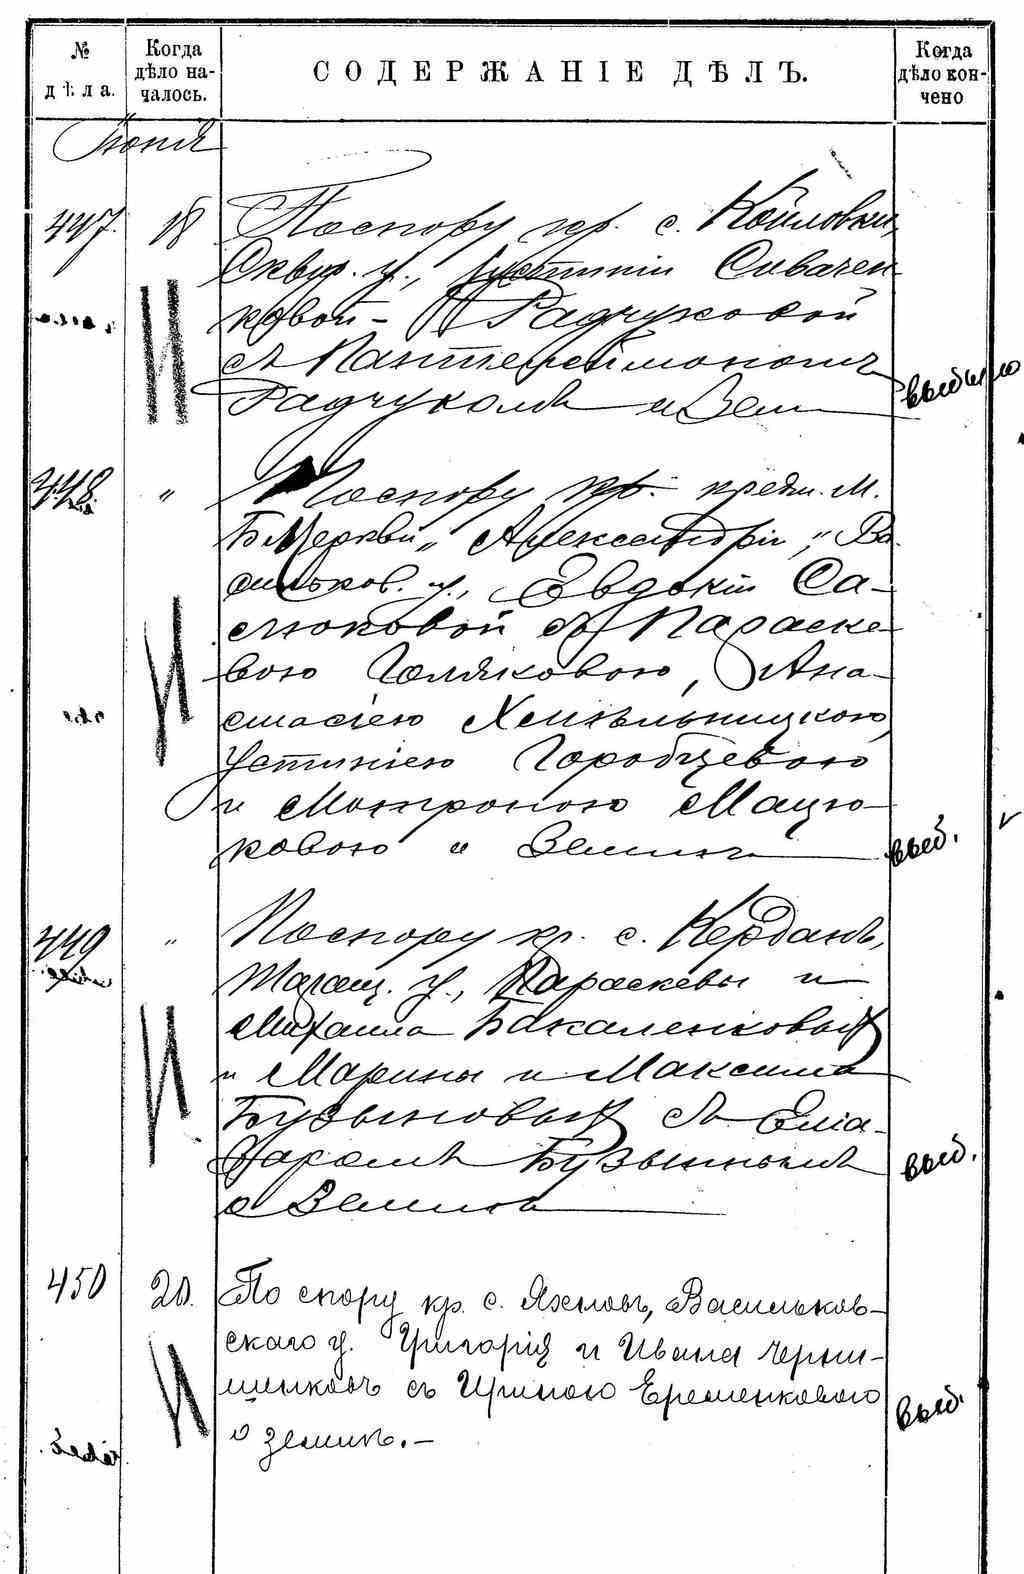 № дѣла.
Когда дѣло началось.
СОДЕРЖАНІЕ ДѢЛЪ.
Когда дѣло кончено
Іюня
447. 18 По спору кр. с. Койловки,
Сквир. у., Устиніи Сивачен-
ковой - Радчуковой
съ Пантелеймономъ
Радчукомъ о Зем
448. „ По спору кр. предм. М.
Б. Церкви „Александрія", Ва-
сильков. у., Евдокіи Са-
слюковой съ Параске-
вою Голяковою, Ана-
стасіею Хмѣльницкою,
Устиніею Горобцевою
и Мотроною Мацю-
ковою о Землѣ
выб.
449 „ По спору кр. с. Кердан.,
Таращ. у., Параскевы и
Михаила Бакаленковыхъ
и Марины и Максима
Бузыновыхъ съ Еліа-
заромъ Бузыннымъ
о Землѣ
выб.
450 20. По спору кр. с. Яхновъ, Васильков-
скаго у. Григорія и Ивана Черни-
шенковъ съ Ириною Еременковою
о землѣ. -
выб.